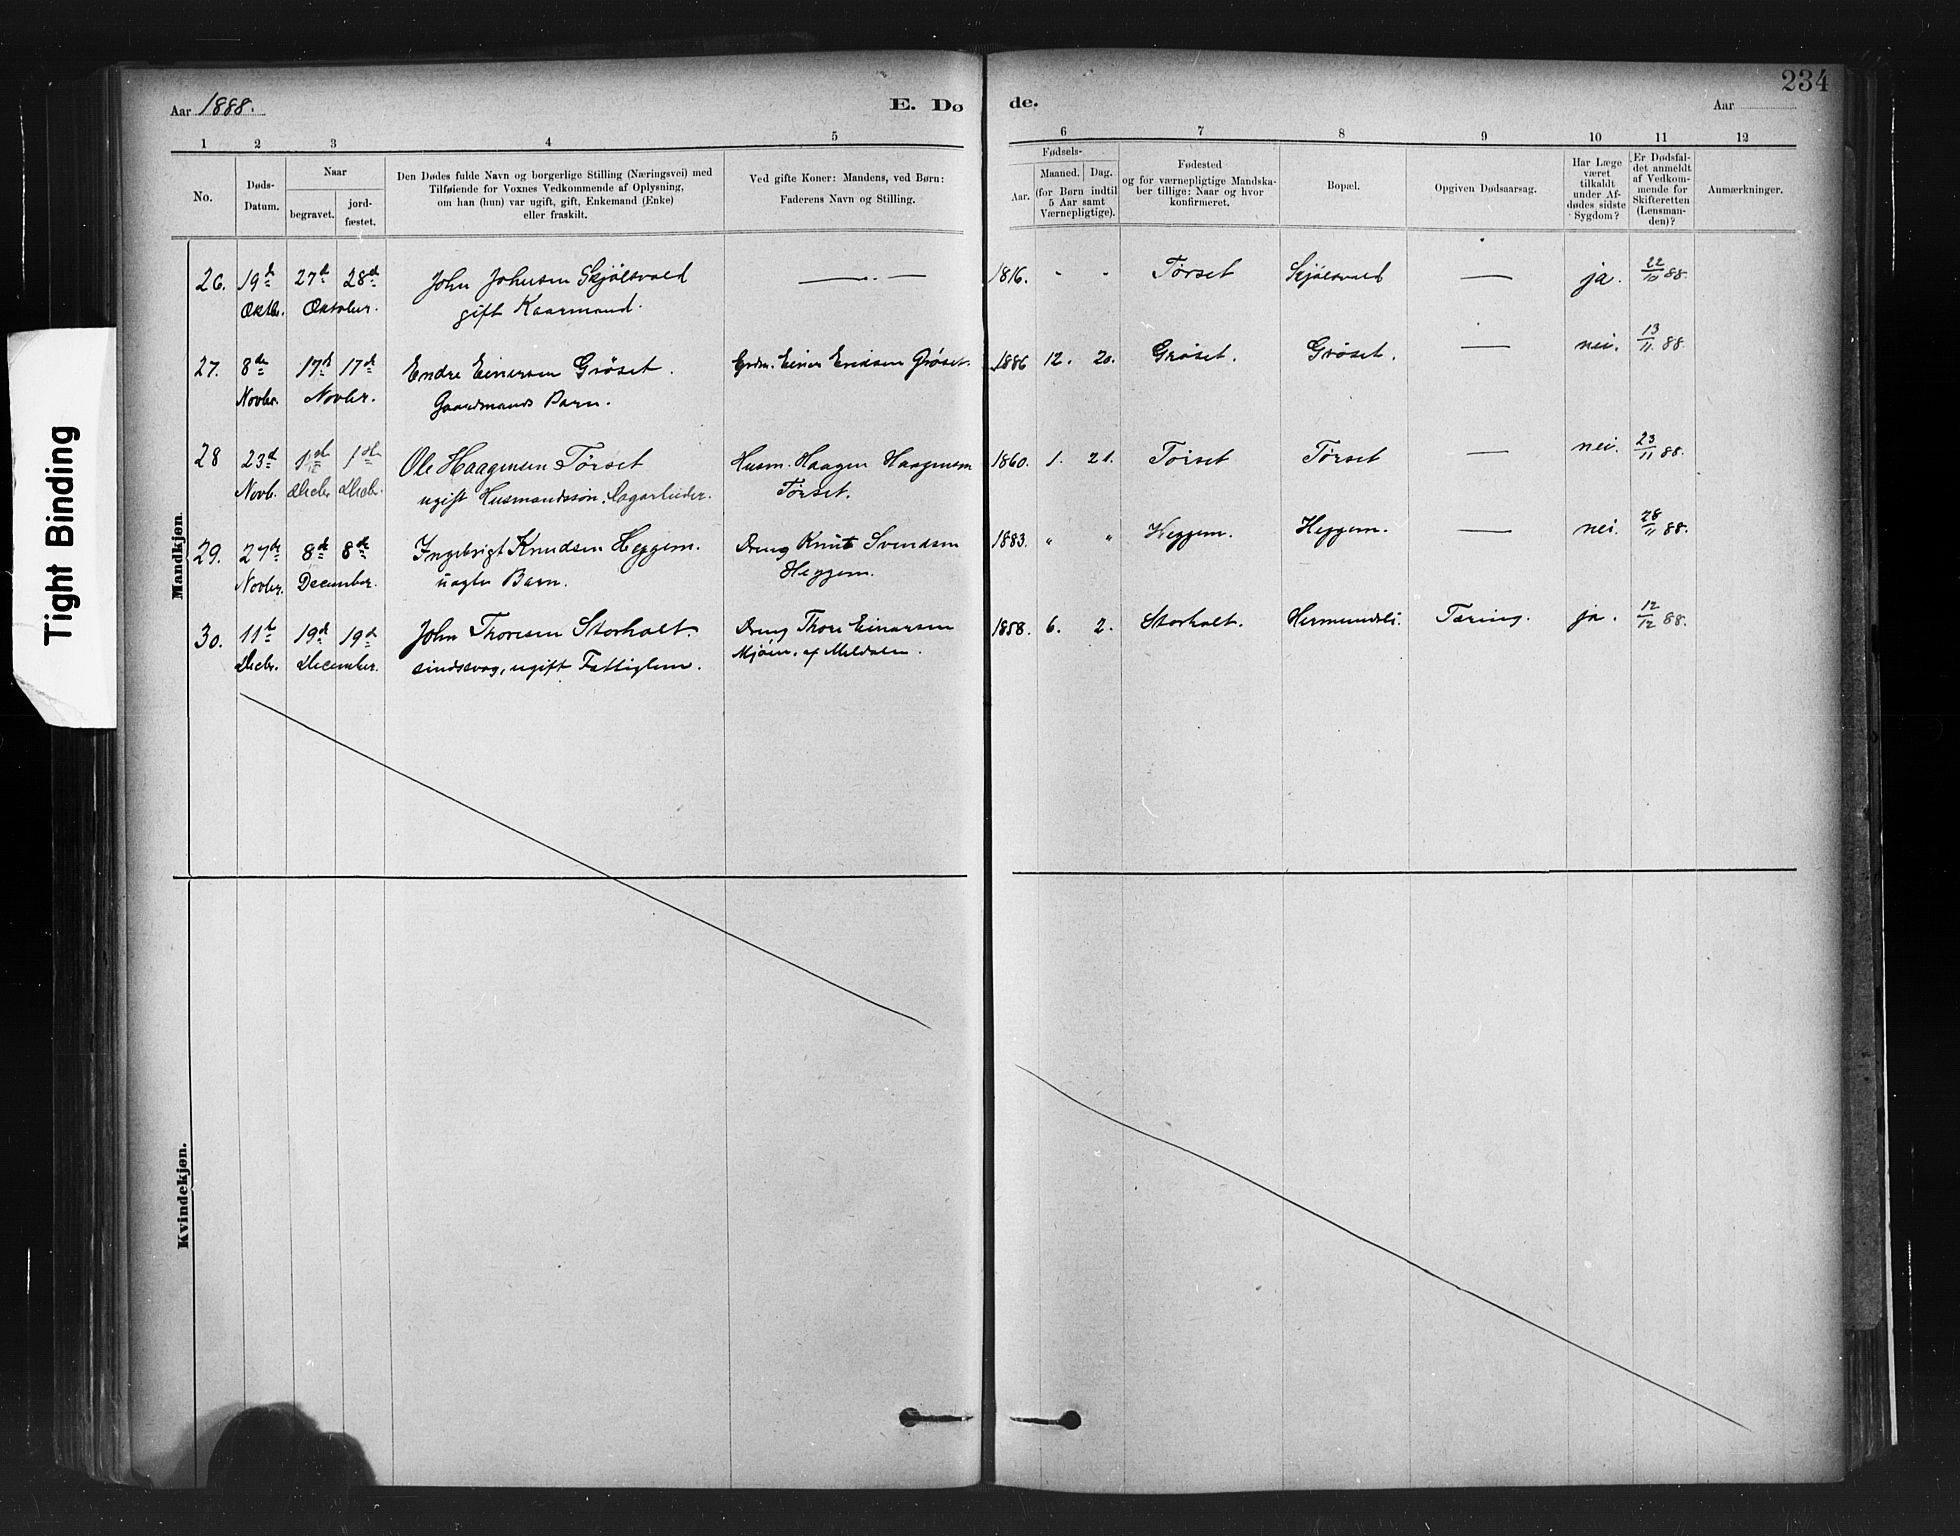 Tight Binding
234
Aar 1888.
E. Dø
de.
Aar
1 2 3 4 5 6 7 8 9 10 11 12
No.
Døds-
Datum.
Naar
begravet.
jord-
fæstet.
Den Dødes fulde Navn og borgerlige Stilling (Næringsvei) med
Tilføiende for Voxnes Vedkommende af Oplysning,
om han (hun) var ugift, gift, Enkemand (Enke)
eller fraskilt.
Ved gifte Koner: Mandens, ved Børn:
Faderens Navn og Stilling.
Fødsels-
Aar.
Maaned. Dag.
(for Børn indtil
5 Aar samt
Værnepligtige).
Fødested
og for værnepligtige Mandska-
ber tillige: Naar og hvor
konfirmeret.
Bopæl.
Opgiven Dødsaarsag.
Har Læge
været
tilkaldt
under Af-
dødes sidste
Sygdom?
Er Dødsfal-
det anmeldt
af Vedkom-
mende for
Skifteretten
(Lensman-
den)?
Anmærkninger.
Mandkjøn.
26. 19de 27de 28de John Johnsen Skjölsvold — 1816. " " Törset Skjölsvold — ja. 22/10 88.
Oktbr. Oktober. gift Kaarmand.
27. 8de 17de 17de Endre Einersen Gröset. Grdm. Einer Endresen Gröset. 1886 12. 20. Gröset. Gröset. — nei. 13/11 88.
Novbr. Novbr. Gaardmands Barn.
28 23de 1ste 1ste Ole Haagensen Törset Husm. Haagen Haagensen 1860. 1. 21. Törset Törset — nei. 23/11 88.
Novb. Decbr. Decbr. ugift Husmandssön. Törset.
29. 27de 8de 8de Ingebrigt Knudsen Heggem. Dreng Knut Svendsen 1883. " " Heggem. Heggem. — nei. 28/11 88.
Novbr. December. uægte Barn. Heggem.
30. 11te 19de 19de John Thoresen Storholt. Dreng Thore Einarsen 1858. 6. 2. Storholt. Hermundsli. Tæring. ja. 12/12 88.
Decbr. December. sindssvag, ugift Fattiglem. Mjöen, af Meldalen.
Kvindekjøn.